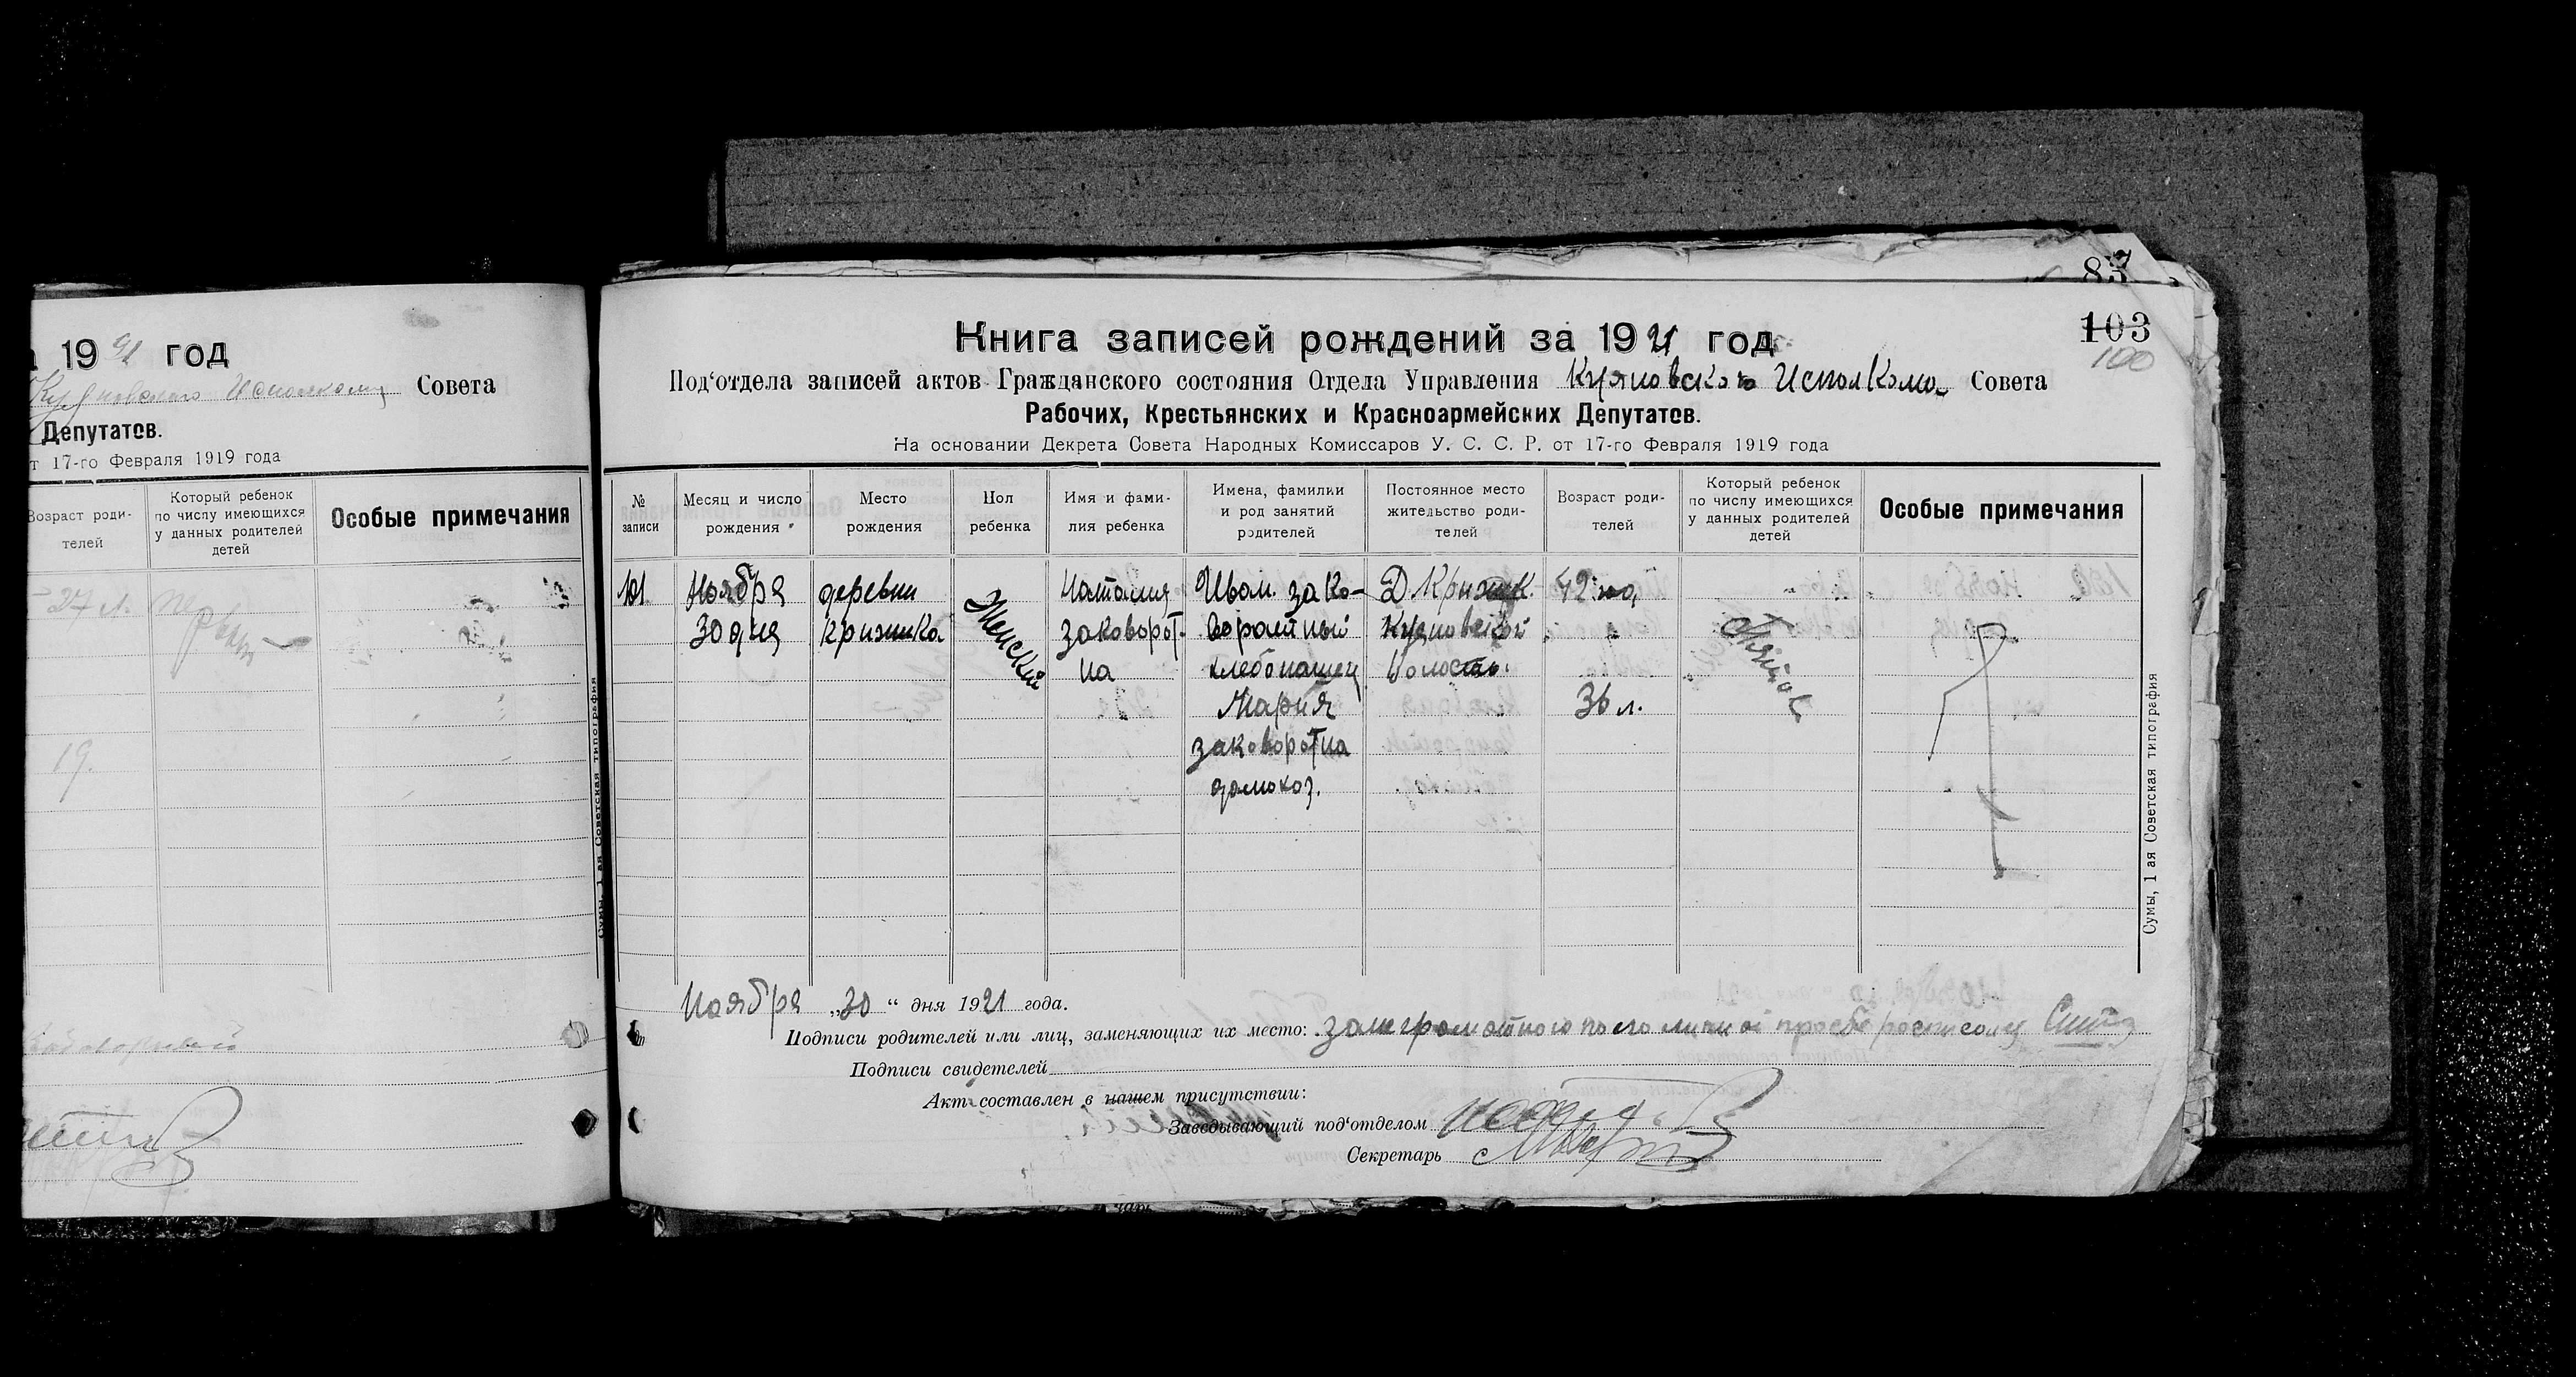 19 21 год
Куяновского Исполкома Совета
Депутатов.
т 17-го Февраля 1919 года
Возраст роди-
телей
Который ребенок
по числу имеющихся
у данных родителей
детей
Особые примечания
27 л.
19.
Сумы, 1 ая Советская типография
83
103
100
Книга записей рождений за 1921 год
Под‘отдела записей актов Гражданского состояния Отдела Управления Куяновского Исполкома Совета
Рабочих, Крестьянских и Красноармейских Депутатов.
На основании Декрета Совета Народных Комиссаров У. С. С. Р. от 17-го Февраля 1919 года
№
записи
Месяц и число
рождения
Место
рождения
Пол
ребенка
Имя и фами-
лия ребенка
Имена, фамилии
и род занятий
родителей
Постоянное место
жительство роди-
телей
Возраст роди-
телей
Который ребенок
по числу имеющихся
у данных родителей
детей
Особые примечания
101
Ноября
30 дня
деревни
Крижика
Женский
Наталия
Заковорот-
на
Иван. Зако-
воротный
хлебопашец
Мария
Заковоротна
домохоз.
Д. Крижик.
Куяновской
Волости.
42 год
36 л.
Сумы, 1 ая Советская типография
Ноября „30“ дня 1921 года.
Подписи родителей или лиц, заменяющих их место: за неграмотного по его личной просьбе росписался
Подписи свидетелей
Акт составлен в нашем присутствии:
Заведывающий под‘отделом
Секретарь